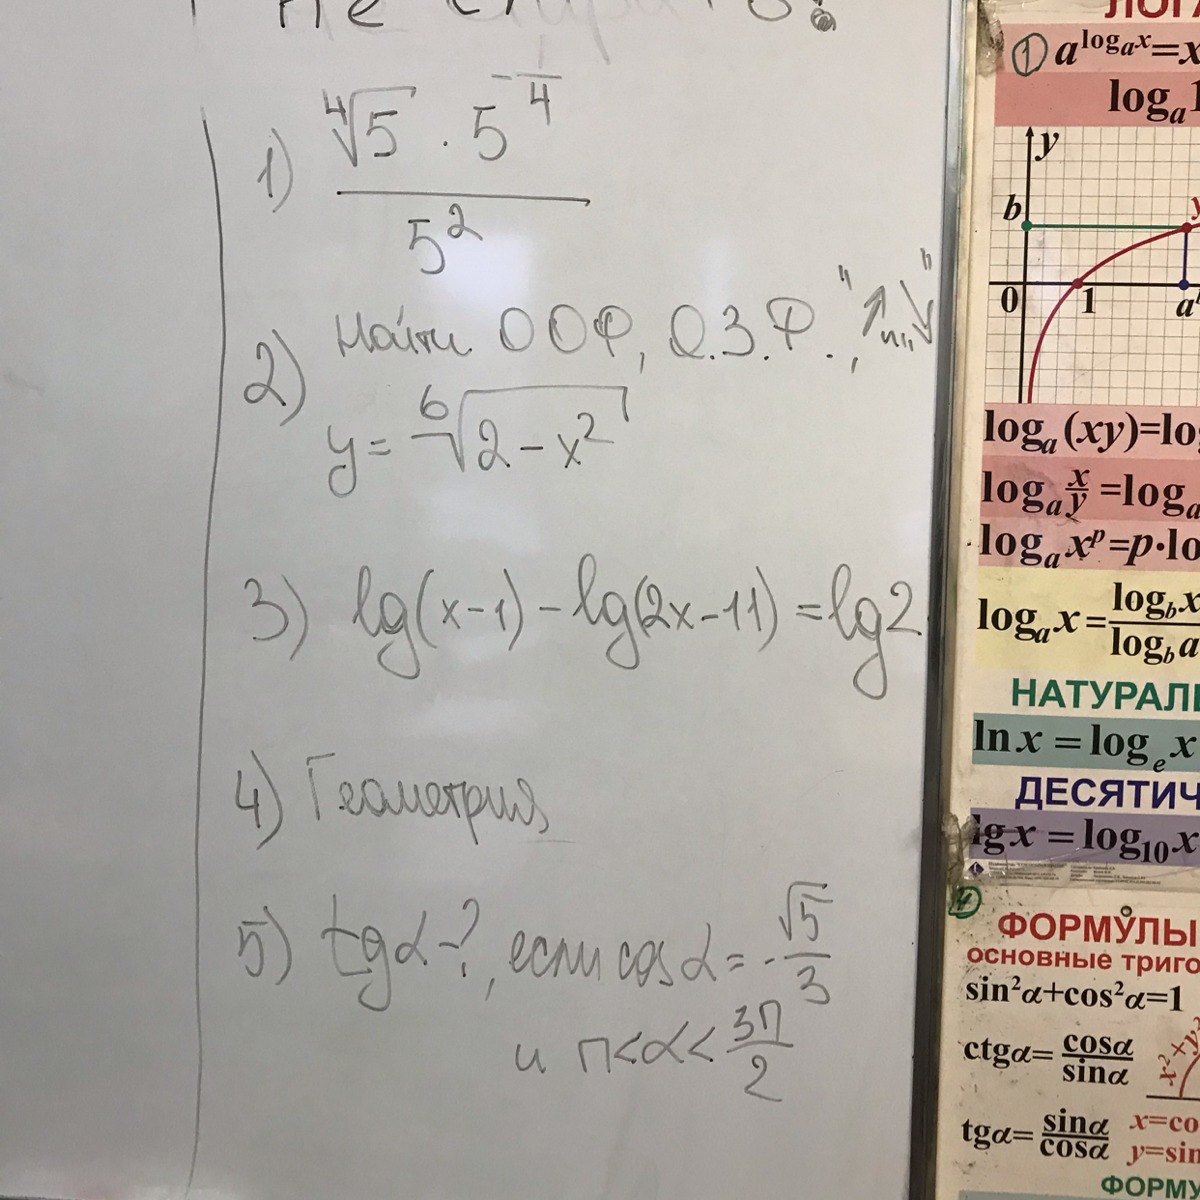 Не
1) ⁴√5 · 5^(-1/4) / 5²
2) Найти ООФ, О.З.Ф., "↗" и "↘"
y = ⁶√(2 - x²)
3) lg(x-1) - lg(2x-11) = lg2
4) Геометрия
5) tgα-?, если cosα = -√5/3
и π<α<3π/2
ЛОГА
① a^(logₐx)=x
logₐ1
y
b
y
0 1 a
logₐ(xy)=lo
logₐ x/y =log
logₐxᵖ=p·lo
logₐx = log_b x / log_b a
НАТУРАЛ
ln x = logₑ x
ДЕСЯТИЧ
lg x = log₁₀x
ФОРМУЛЫ
основные триго
sin²α+cos²α=1
ctgα= cosα/sinα
x²+y
tgα= sinα/cosα
x=co
y=sin
ФОРМУ